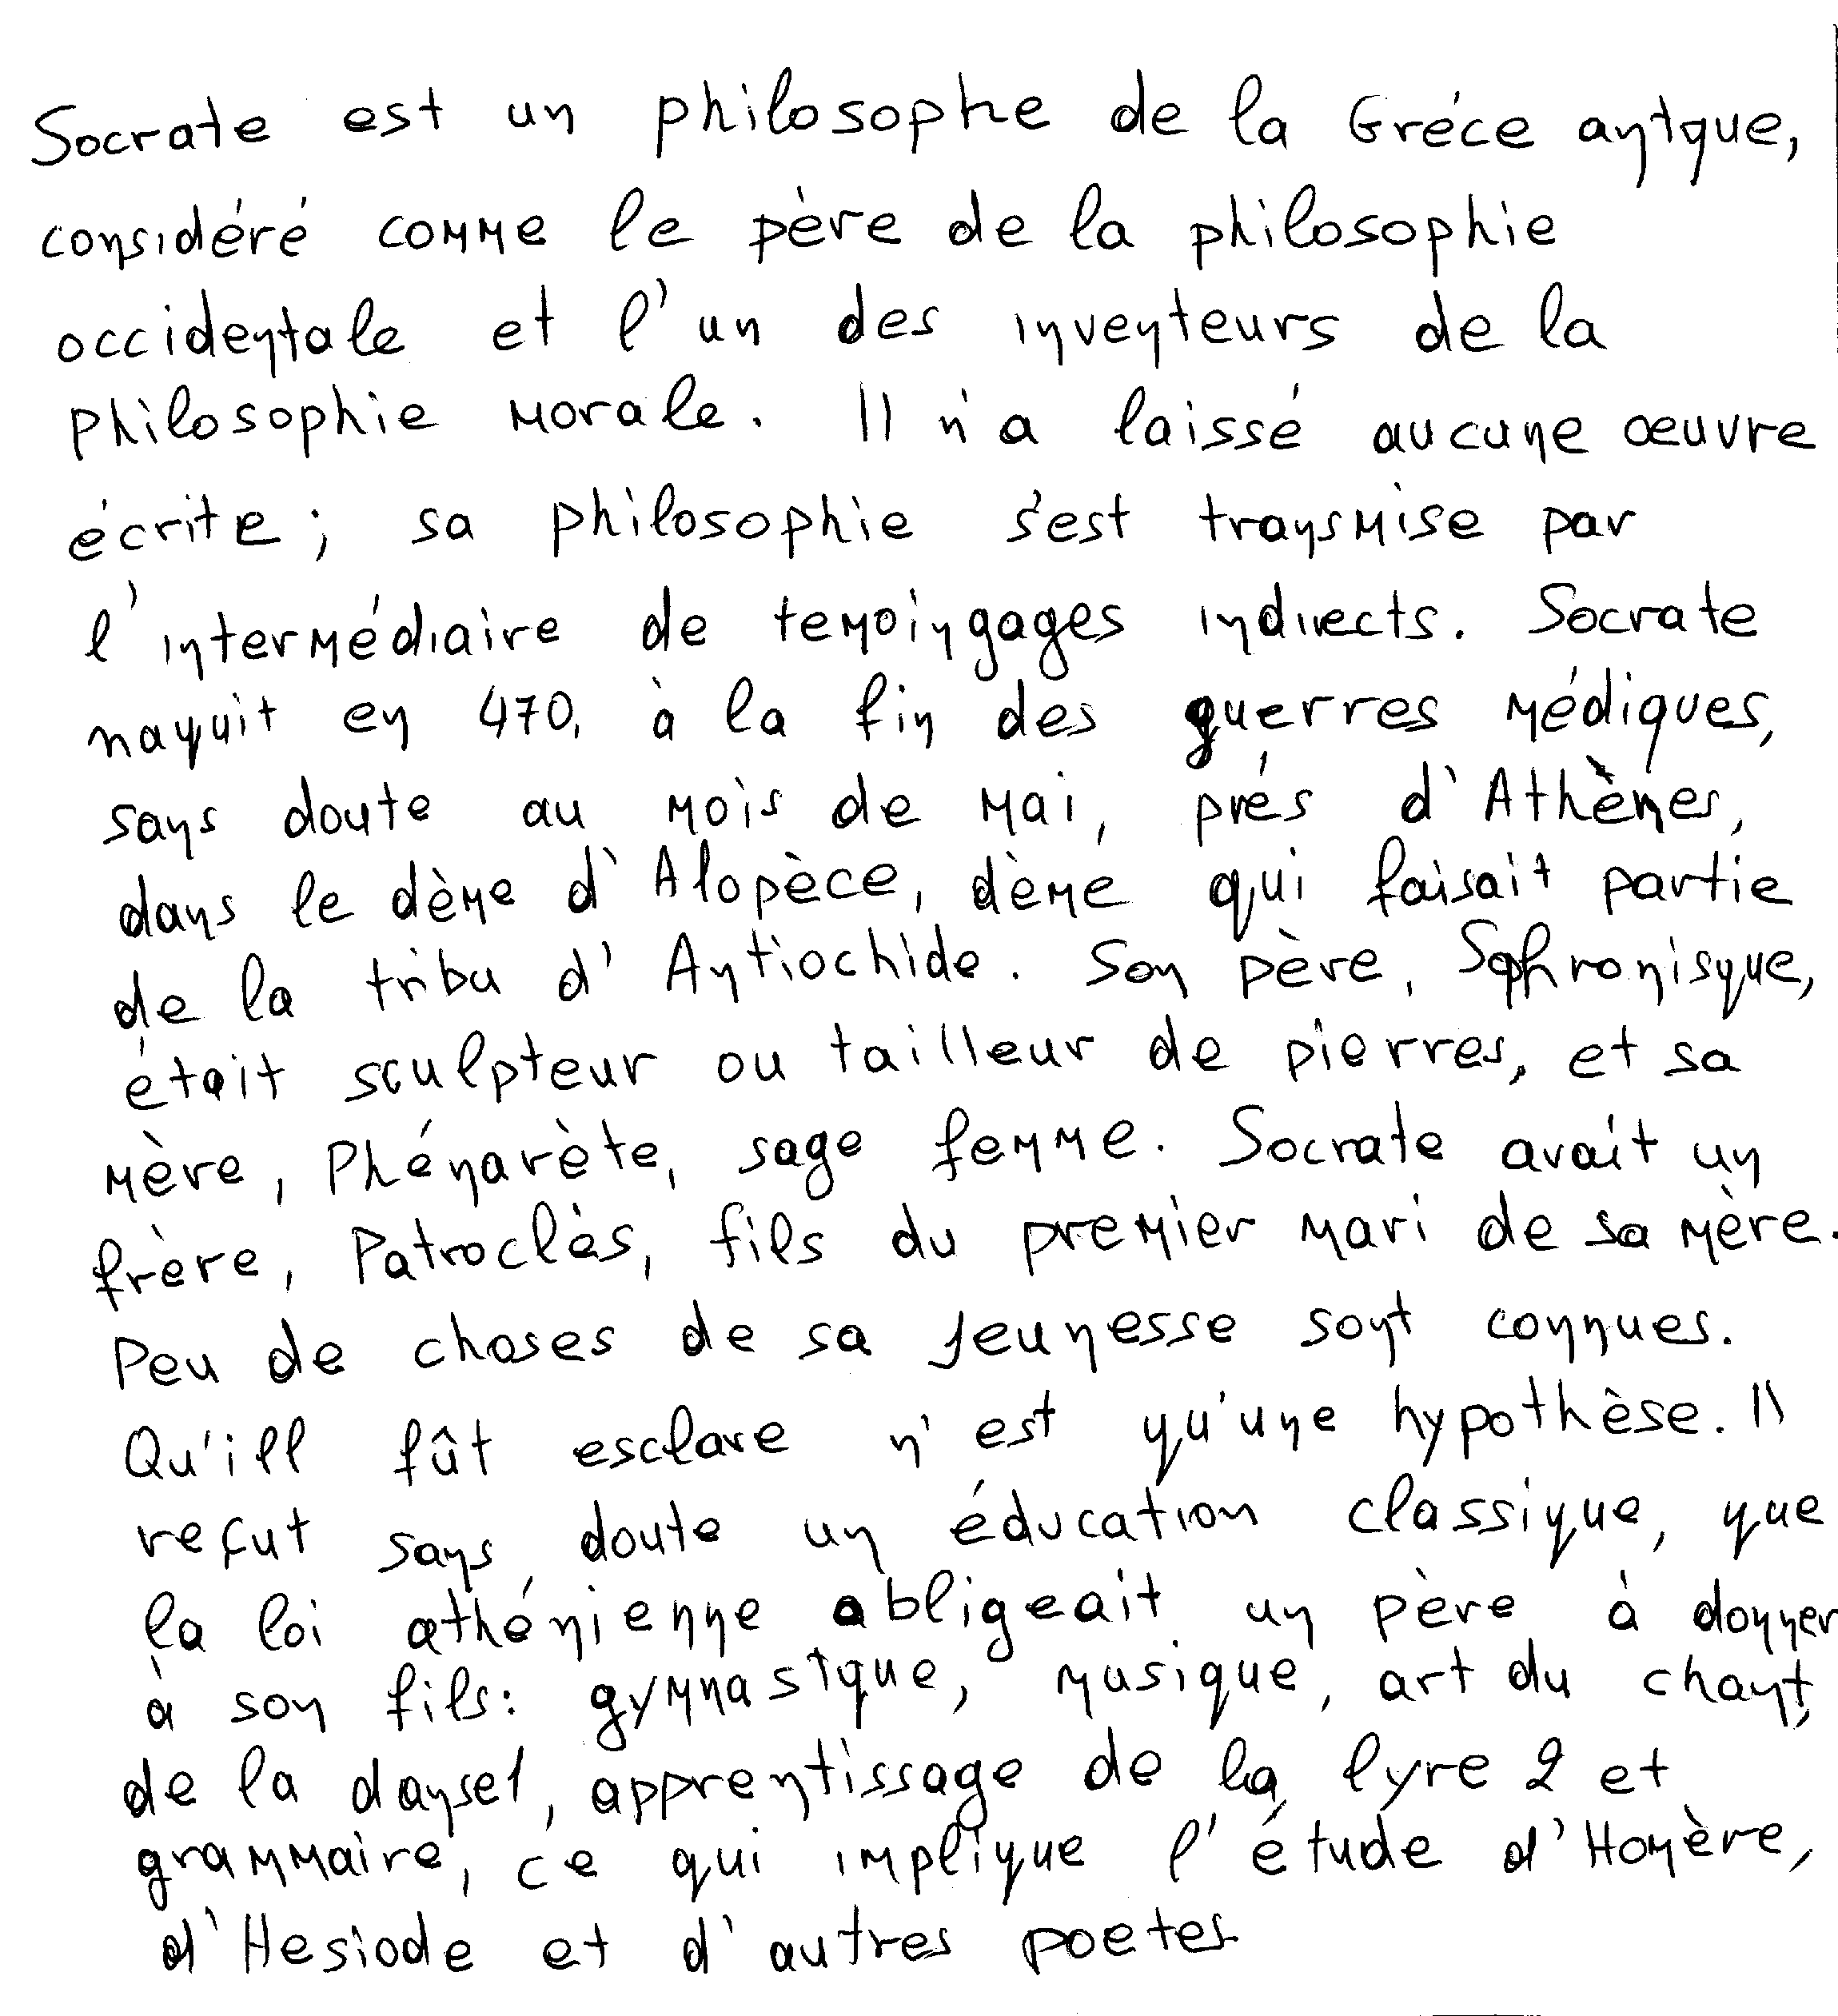 Socrate est un philosophe de la Gréce antque,
considéré comme le père de la philosophie
occidentale et l'un des inventeurs de la
philosophie morale. Il n'a laissé aucune œuvre
écrite; sa philosophie s'est transmise par
l'intermédiaire de temoingages indirects. Socrate
naquit en 470, à la fin des guerres médiques,
sans doute au mois de mai, prés d'Athènes,
dans le dème d'Alopèce, dèmé qui faisait partie
de la tribu d'Antiochide. Son père, Sophronisque,
était sculpteur ou tailleur de pierres, et sa
mère, Phénarète, sage femme. Socrate avait un
frère, Patroclès, fils du premier mari de sa mère.
Peu de choses de sa jeunesse sont connues.
Qu'ill fût esclave n'est qu'une hypothèse. Il
reçut sans doute un éducation classique, que
la loi athénienne obligeait un père à donner
à son fils: gymnastque, musique, art du chant,
de la danse1, apprentissage de la lyre 2 et
grammaire, ce qui implique l'étude d'Homère,
d'Hesiode et d'autres poetes